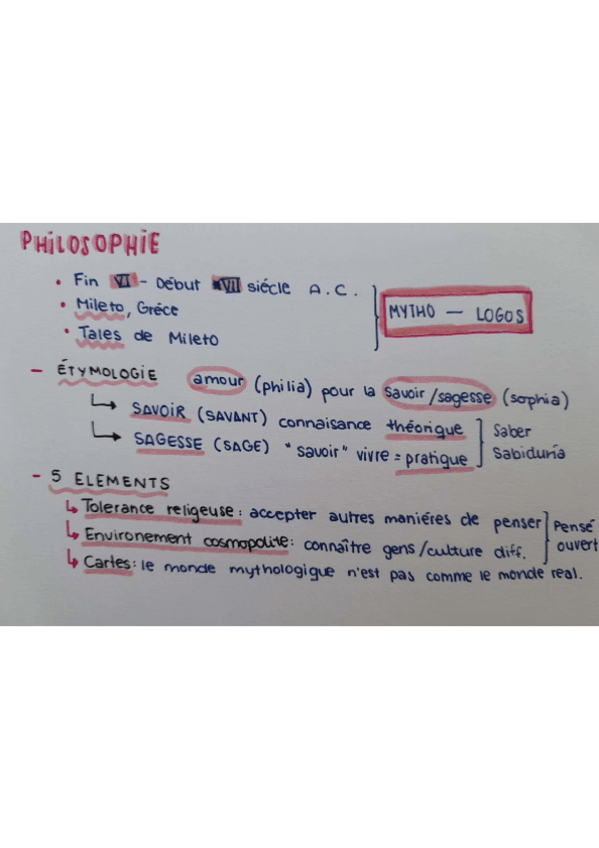 PHILOSOPHIE
• Fin VI - Début VII siécle A.C.
• Mileto, Gréce
• Tales de Mileto
MYTHO — LOGOS
- ÉTYMOLOGIE amour (philia) pour la savoir/sagesse (sophia)
↳ SAVOIR (SAVANT) connaisance théorique
↳ SAGESSE (SAGE) "savoir" vivre = pratique
Saber
Sabiduría
- 5 ELEMENTS
↳ Tolerance religeuse: accepter autres maniéres de penser
↳ Environement cosmopolite: connaître gens/culture diff.
Pensé
ouvert
↳ Cartes: le monde mythologique n'est pas comme le monde real.